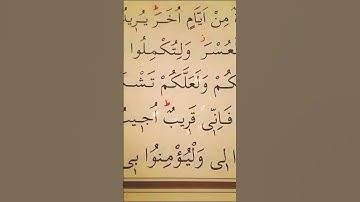 مِنْ اَيَّامٍ اُخَرَ يُرٖيدُ
لْعُسْرَ وَلِتُكْمِلُوا
كُمْ وَلَعَلَّكُمْ تَشْكُ
فَاِنّٖى قَرٖيبٌ اُجٖيبُ
لٖى وَلْيُؤْمِنُوا بٖى